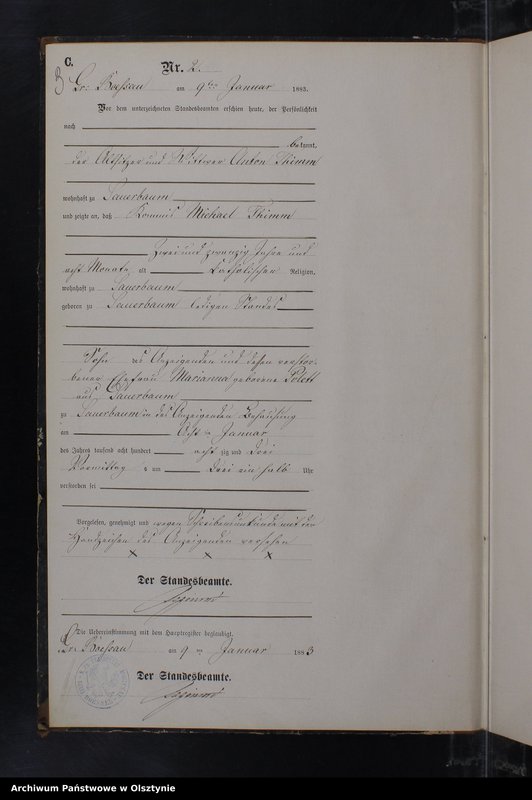 C.
Nr. 2.
Gr. Boessau am 9ten Januar 1883.
Vor dem unterzeichneten Standesbeamten erschien heute, der Persönlichkeit
nach
bekannt,
der Altsitzer und Wittwer Anton Thimm
wohnhaft zu Lauerbaum
und zeigte an, daß Kommis Michael Thimm
zwei und zwanzig Jahre und
acht Monate alt katholischer Religion,
wohnhaft zu Lauerbaum
geboren zu Lauerbaum ledigen Standes
Sohn des Anzeigenden und dessen verstor-
bener Ehefrau Marianna geborene
aus Lauerbaum
zu Lauerbaum in des Anzeigenden Behausung
am Acht ten Januar
des Jahres tausend acht hundert acht zig und drei
Vormittag s um drei ein halb Uhr
verstorben sei
Vorgelesen, genehmigt und wegen Schreibensunkunde mit den
Handzeichen des Anzeigenden versehen
x x x
Der Standesbeamte.
Die Uebereinstimmung mit dem Hauptregister beglaubigt.
Gr. Boessau am 9 ten Januar 1883
Der Standesbeamte.
Archiwum Państwowe w Olsztynie